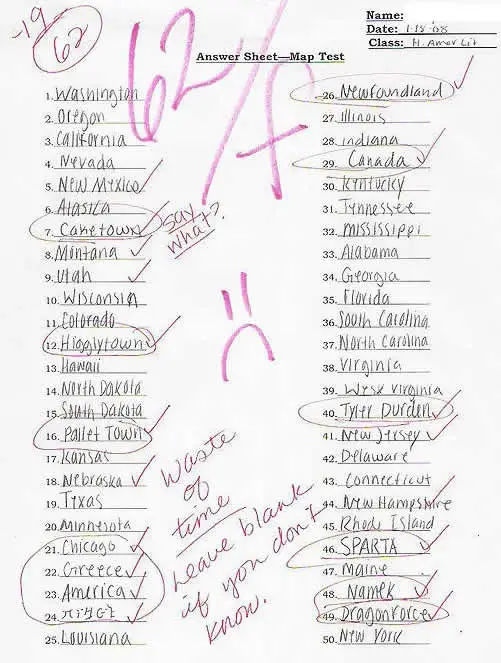 -19
62
62/F
Name:
Date: 1-18-'08
Class: H. Amer Lit
Answer Sheet—Map Test
1. Washington
2. Oregon
3. California
4. Nevada
5. New Mexico
6. Alaska
7. Caketown
say what?
8. Montana
9. Utah
10. Wisconsin
11. Colorado
12. Higglytown
13. Hawaii
14. North Dakota
15. South Dakota
16. Pallet Town
17. Kansas
18. Nebraska
19. Texas
20. Minnesota
21. Chicago
22. Greece
23. America
24.
25. Louisiana
:(
Waste
of
time
Leave blank
if you don't
know.
26. Newfoundland
27. Illinois
28. indiana
29. Canada
30. Kentucky
31. Tennessee
32. Mississippi
33. Alabama
34. Georgia
35. Florida
36. South Carolina
37. North Carolina
38. Virginia
39. West Virginia
40. Tyler Durden
41. New Jersey
42. Delaware
43. Connecticut
44. New Hampshire
45. Rhode Island
46. SPARTA
47. Maine
48. Namek
49. Dragonforce
50. New York